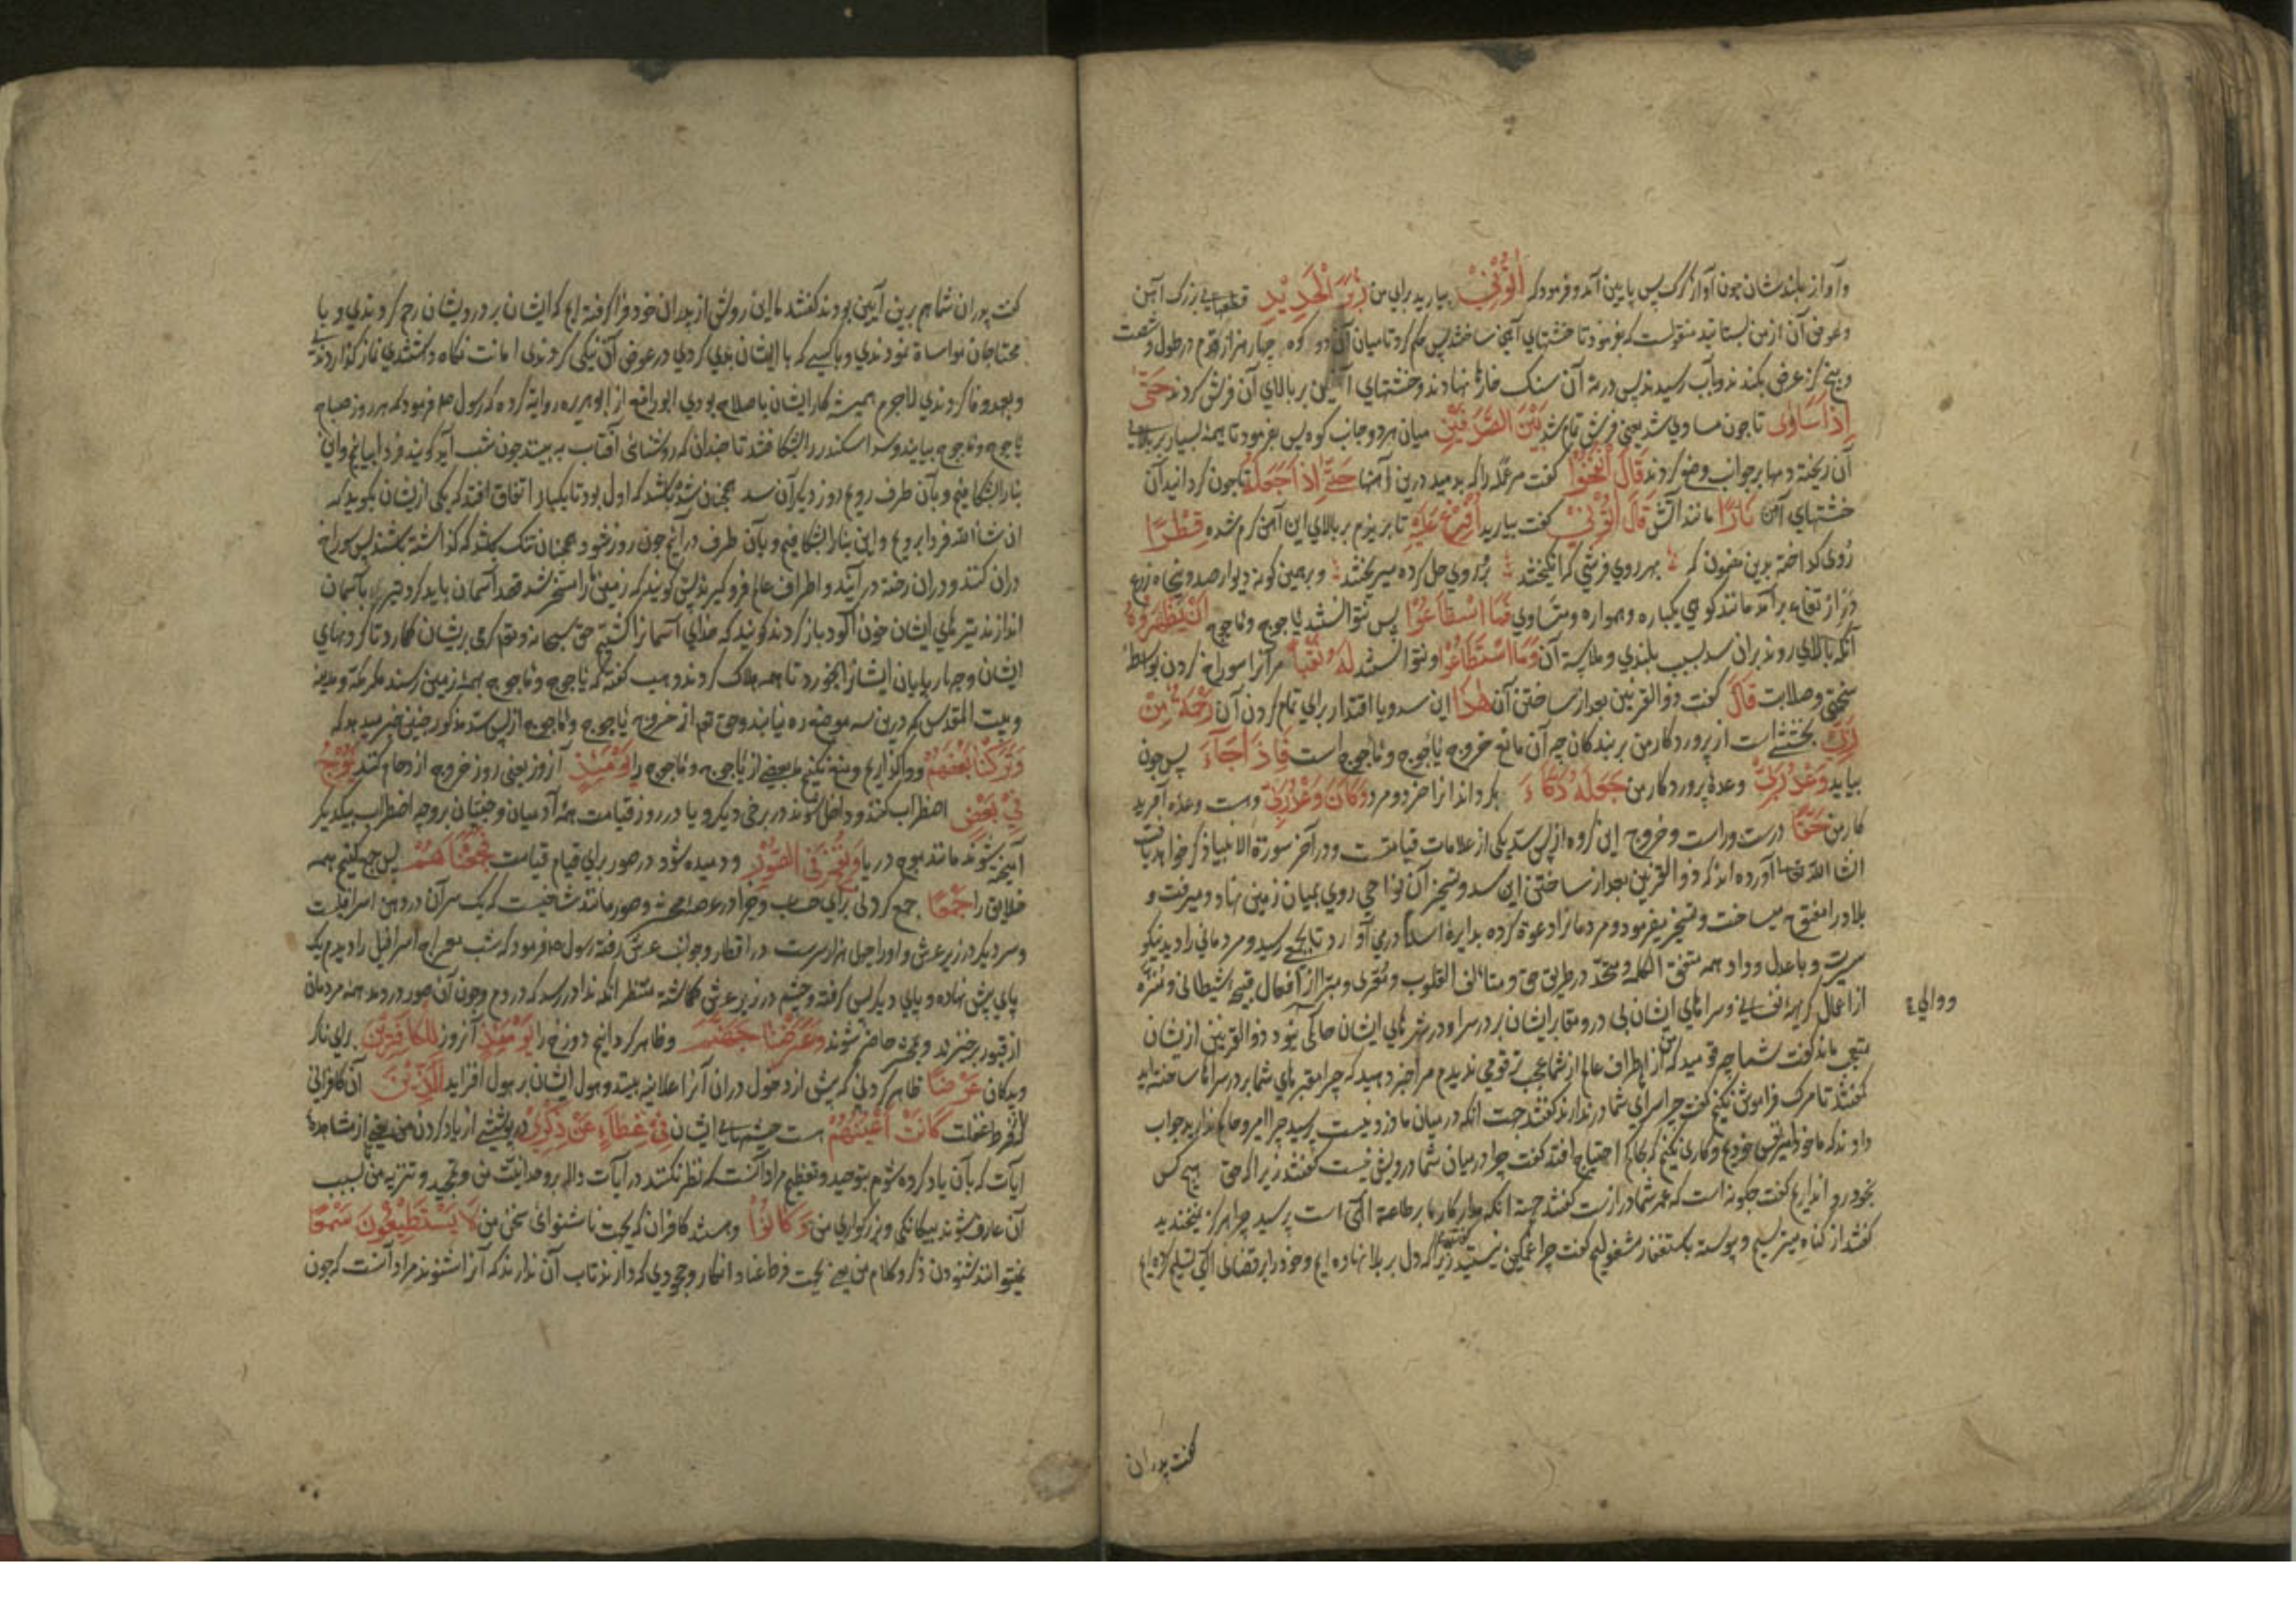 وآواز بلندشان چون آواز گرگ پس پایین آمد و فرمود که اٰتُوْنِیْ بیارید برای من زُبَرَ الْحَدِیْدِ قطعهایی بزرگ آهن
وعوض آن از من بستانید منقولست که بفرمود تا خشتهای آهنی ساختند پس حکم کرد تا میان آن دو کوه چهار هزار قدم در طول و شصت
و پنج گز عرض بکندند و بآب رسید پس در تۀ آن سنک خاره نهادند و خشتهای آهنین بر بالای آن فرش کردند حَتّٰی
اِذَا سَاوٰی تا چون مساوی شد یعنی فرش تمام شد بَیْنَ الصَّدَفَیْنِ میان هر دو جانب کوه پس بفرمود تا هیمۀ بسیار بر بالای
آن ریخته و دمها بر جوانب وضع کردند قَالَ انْفُخُوْا گفت مر عمله را که بدمید درین آهنها حَتّٰی اِذَا جَعَلَهٗ تا چون کردانید آن
خشتهای آهن نَارًا مانند آتش قَالَ اٰتُوْنِیْ گفت بیارید اُفْرِغْ عَلَیْهِ تا بریزم بر بالای این آهن کرم شده قِطْرًا
روی گداخته برین مضمون که بهر روی فرشی که انگیختند بر و روی حل کرده میریختند و برهمین کونه دیوار صد و پنجاه ذرع
در ارتفاع برآمد مانند کوهی یکپاره و هموار و متساوی فَمَا اسْطَاعُوْا پس نتوانستند یاجوج و ماجوج اَنْ یَّظْهَرُوْهُ
آنکه بالای روند بران سد بسبب بلندی و ملاست آن وَمَا اسْتَطَاعُوْا و نتوانستند لَهٗ نَقْبًا مر آنرا سوراخ کردن بواسطۀ
سختی و صلابت قَالَ گفت ذوالقرنین بعد از ساختن آن هٰذَا این سد و یا اقتدار برای تمام کردن آن رَحْمَةٌ مِّنْ
رَّبِّیْ بخششی است از پروردکار من بر بندکان چه آن مانع خروج یاجوج و ماجوج است فَاِذَا جَآءَ پس چون
بیاید وَعْدُ رَبِّیْ وعدۀ پروردکار من جَعَلَهٗ دَکَّآءَ بکرداند آنرا خرد و مرد وَکَانَ وَعْدُ رَبِّیْ وهست وعدۀ آفرید
کار من حَقًّا درست و راست و خروج این گروه از پس سد یکی از علامات قیامتست و در آخر سورة الانبیا ذکر خواهد یافت
ان شاء اللّٰه تعالی آورده اند که ذوالقرنین بعد از ساختن این سد و تسخیر آن نواحی روی بمیان زمین نهاد و میرفت و
بلاد را مفتوح میساخت و تسخیر میفرمود و مردمانرا دعوة کرده بدایرۀ اسلام درمی آورد تا بجائی رسید و مردمانی را دید نیکو
سیرت و با عدل و داد همه متفق الکلمه و متحد در طریق حق و متالف القلوب و معری و مبرا از افعال قبیحۀ شیطانی و منزه
ازاعمال کریهۀ نفسانی و سراهای ایشان بی در و مقابر ایشان بر در سرا و در شهرهای ایشان حاکمی نبود ذوالقرنین ازیشان
و والی ع
متعجب ماند گفت شما چه قومید که من از اطراف عالم از شما عجب تر قومی ندیدم مرا خبر دهید که چرا مقبرهای شما بر در سراها ساخته اید
گفتند تا مرک فراموش نکنیم گفت چرا سرای شما در ندارند گفتند جهت آنکه در میان ما دزد نیست پرسید چرا امیر و حاکم ندارید جواب
دادند که ما خود امیر نفس خودیم و کاری نکنیم که بحاکم احتیاج افتد گفت چرا در میان شما درویش نیست گفتند زیرا که حق هیچ کس
بخود روا نداریم گفت چگونه است که عمر شما درازست گفتند جهة آنکه مدار کار ما بر طاعة الٰهی است پرسید چرا هرگز نمیخندید
گفتند از گناه میترسیم و پیوسته باستغفار مشغولیم گفت چرا غمکین نیستید گفتند زیرا که دل بر بلا نهاده ایم و خود را بر قضای الٰهی تسلیم کرده ایم
گفت پدران
گفت پدران شما هم برین آیین بودند گفتند ما این روش از پدران خود فراگرفته ایم که ایشان بر درویشان رحم کردندی و با
محتاجان مواساة نمودندی و با کسی که با ایشان بدی کردی در عوض آن نیکی کردندی امانت نگاه داشتندی نماز گذاردندی
و بعهد وفا کردندی لاجرم همیشه کار ایشان باصلاح بودی ابو رافع از ابوهریره روایة کرده که رسول صلعم فرمود که هر روز صباح
یاجوج و ماجوج بیایند و سد اسکندر را بشکافند تا چندان که روشنائی آفتاب به بینند چون شب آید گویند فردا بیاییم و این
بنا را بشکافیم و بآن طرف رویم روز دیگر آن سد همچنان شده باشد که اول بود تا یکبار اتفاق افتد که یکی ازیشان بگوید که
ان شاء اللّٰه فردا برویم و این بنا را بشکافیم و بآن طرف درآییم چون روز شود همچنان تنک باشد که گذاشته باشند پس سوراخ
دران کنند و دران رخنه درآیند و اطراف عالم فرو گیرند پس گویند که زمین ما را مسخر شد قصد آسمان باید کرد تیرها بآسمان
اندازند تیرهای ایشان خون آلود باز گردند گویند که خدای آسمانرا کشتیم حق سبحانه و تعالی کرمی بریشان گمارد تا گردنهای
ایشان و چهارپایان ایشانرا بخورد تا همه هلاک گردند و وهب گفته که یاجوج و ماجوج بهمۀ زمین رسند مگر مکه و مدینه
و بیت المقدس که درین سه موضع ره نیابند و حق تعالی از خروج یاجوج و ماجوج از پس سد مذکور چنین خبر میدهد که
وَتَرَکْنَا بَعْضَهُمْ و واگذاریم و منع نکنیم بعضی از یاجوج و ماجوج را یَوْمَئِذٍ آنروز یعنی روز خروج ازدحام کنند یَّمُوْجُ
فِیْ بَعْضٍ اضطراب کنند و داخل شوند در برخی دیگر و یا در روز قیامت همۀ آدمیان و جنیان بروجه اضطراب بیکدیگر
آمیخته شوند مانند موج دریا وَّنُفِخَ فِی الصُّوْرِ و دمیده شود در صور برای قیام قیامت فَجَمَعْنٰهُمْ پس جمع کنیم همه
خلایق را جَمْعًا جمع کردنی برای حساب و جزا در عرصۀ محشر و صور مانند شاخیست که یک سر آن در دهن اسرافیلست
و سر دیگر در زیر عرش و او را چهل هزار سرست در اقطار و جوانب عرش رفته رسول صلعم فرمود که شب معراج اسرافیل را دیدم یک
پای پیش نهاده و پای دیگر پس گرفته و چشم در زیر عرش گماشته منتظر آنکه ندا در رسد که در دم و چون آن صور در دمد همه مردمان
از قبور برخیزند و بمحشر حاضر شوند وَعَرَضْنَا جَهَنَّمَ و ظاهر گردانیم دوزخ را یَوْمَئِذٍ آنروز لِّلْکَافِرِیْنَ برای نا گر
ویدگان عَرْضًا ظاهر کردنی که پیش از دخول دران آنرا علانیه بینند و هول ایشان بر هول افزاید الَّذِیْنَ آن کافرانی
که از فرط غفلت کَانَتْ اَعْیُنُهُمْ هست چشمهای ایشان فِیْ غِطَآءٍ عَنْ ذِکْرِیْ در پوششی از یاد کردن من یعنی از مشاهدۀ
آیات که بآن یاد کرده شوم بتوحید و تعظیم مراد آنست که نظر نکنند در آیات داله بر وحدانیت من و تمجید و تنزیه من بسبب
آن عارف شوند بیگانگی و بزرگواری من وَکَانُوْا و هستند کافران که بجهت ناشنوائی سخن من لَا یَسْتَطِیْعُوْنَ سَمْعًا
نمیتوانند شنودن ذکر و کلام من یعنی بجهت فرط عناد و انکار و جحودی که دارند تاب آن ندارند که آنرا شنوند مراد آنست که چون